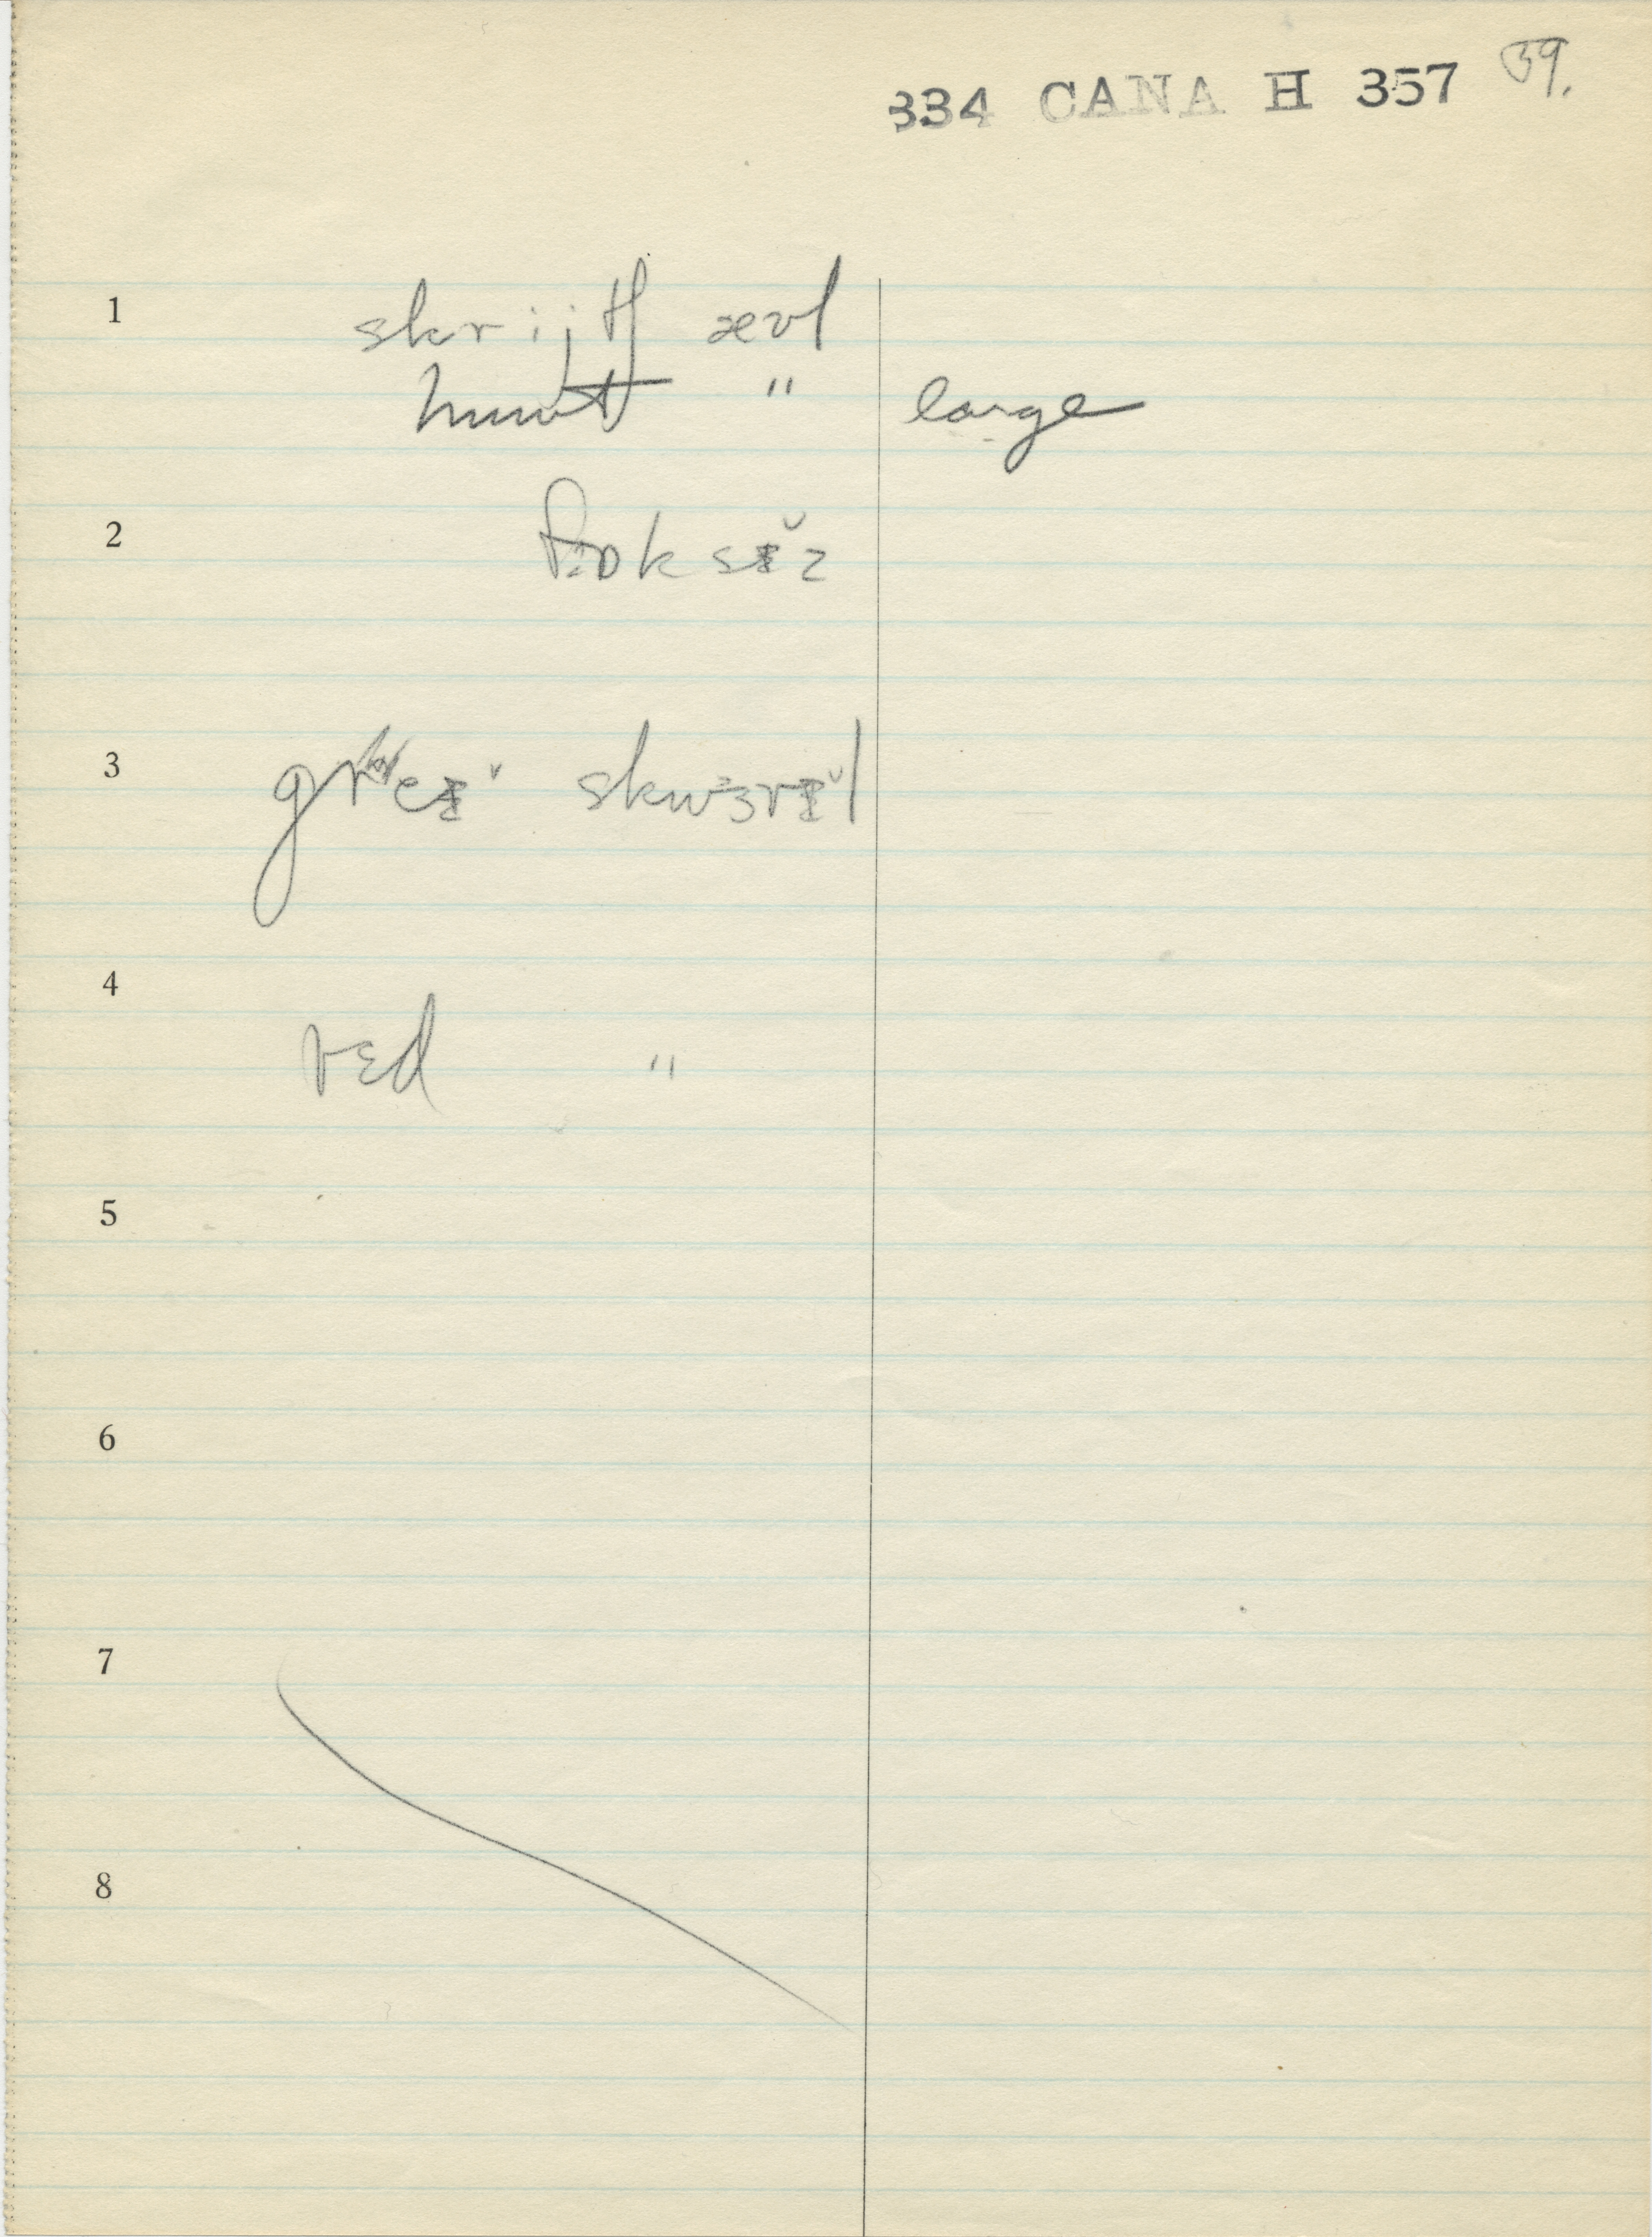 334 CANA H 357 39.
1 skrijtʃ ævl
" large
2
3 skwɜrɪ̆l
4 rɛd "
5
6
7
8